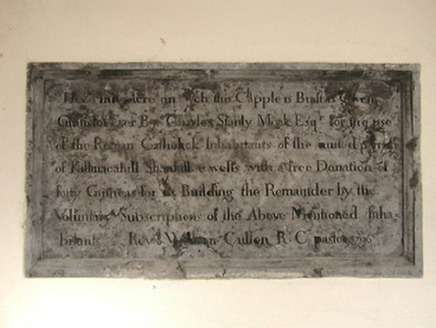 this Capple is Built is Given
for ever By Charles Stanly Monk Esqr for the use
of the Roman Catholick Inhabitants of the united parish
of Killmacahill Shankill & wells with a free Donation of
forty Guineas for its Building the Remainder by the
Voluntary Subscriptions of the Above Mentioned Inha
bitants Revd William Cullen R C pastor